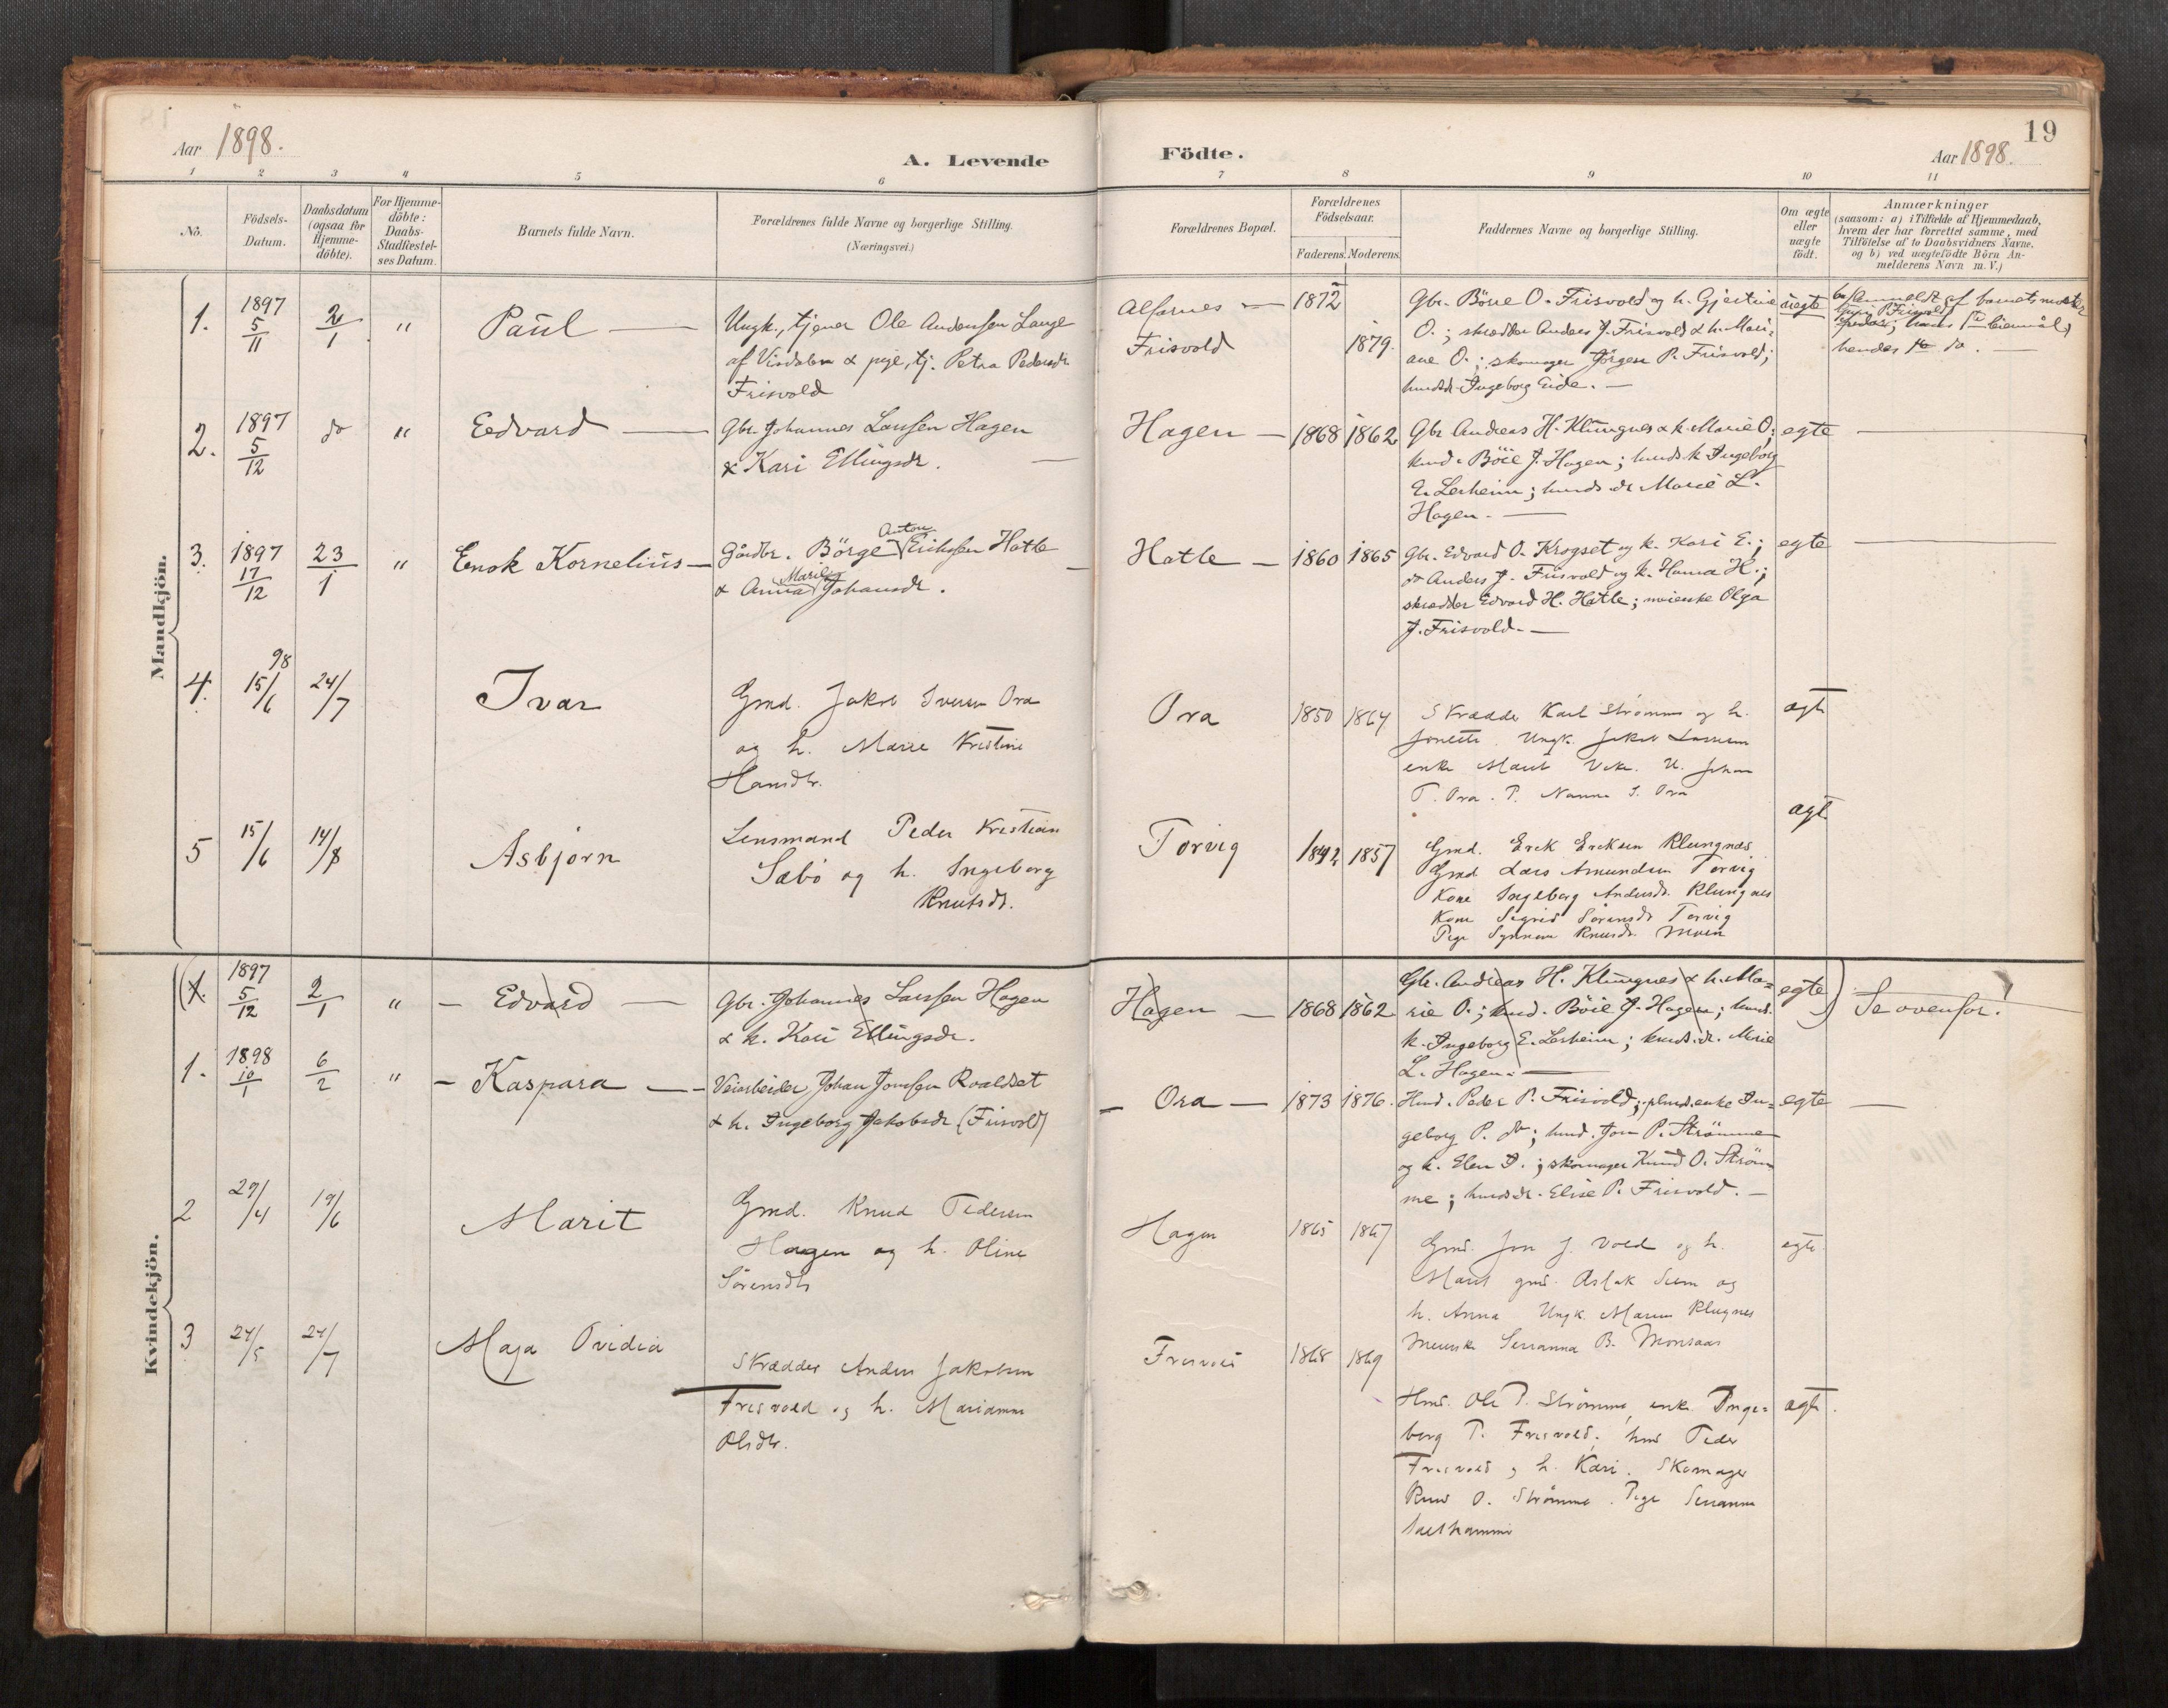 19
Aar 1898.
A. Levende
Födte.
Aar 1898.
1 2 3 4 5 6 7 8 9 10 11
No.
Födsels-
Datum.
Daabsdatum
(ogsaa for
Hjemme-
döbte).
For Hjemme-
döbte:
Daabs-
Stadfæstel-
ses Datum.
Barnets fulde Navn.
Forældrenes fulde Navne og borgerlige Stilling.
(Næringsvei.)
Forældrenes Bopæl.
Forældrenes
Födselsaar.
Faderens. Moderens.
Faddernes Navne og borgerlige Stilling.
Om ægte
eller
uægte
födt.
Anmærkninger
(saasom: a) i Tilfælde af Hjemmedaab,
hvem der har forrettet samme, med
Tilföielse af to Daabsvidners Navne,
og b) ved uægtefödte Börn An-
melderens Navn m. V.)
Mandkjön.
1.
1897
5/11
2/1
"
Paul
Ungk., tjener Ole Andersen Lange
af Visdalen & pige, tj. Petra Pedersdr
Frisvold
Alfarnes
Frisvold
1872
1879.
Gbr. Böie O. Frisvold og h. Gjertine
O.; skrædder Anders J. Frisvold & h. Mari-
ane O.; skomager Jörgen P. Frisvold;
husdr Ingeborg Eide.
uegte
Anmeldt af barnets moster
hendes 1ste do.
2.
1897
5/12
do
"
Eedvard
Gbr. Johannes Larssen Hagen
& Kari Ellingsdr.
Hagen
1868 1862
Gbr Andreas H. Klungnes & k. Marie O;
husd. Böie J. Hagen; husds k. Ingeborg
E. Lerheim; husds dr Marie L.
Hagen.
egte
3.
1897
17/12
23/1
"
Enok Kornelius
Gårdbr. Börge Anton Eriksen Hatle
& Anna Marile Johansdr.
Hatle
1860 1865
Gbr. Edvard O. Krogset og k. Kari E.;
do Anders J. Frisvold og k. Hanna H.;
skrædder Edvard H. Hatle; meierske Olga
J. Frisvold.
egte
4.
98
15/6
24/7
Ivar
Gmd. Jakob Iversen Ora
og h. Marie Kristine
Hansdtr.
Ora
1850 1864
Skrædder Karl Strømme og h.
Jonette. Ungk. Jakob Larssen
enke Marit U. Johan
T. Ora. P. Nanna I. Ora
ægte
5
15/6
14/8
Asbjørn
Lensmand Peder Kristian
Sæbø og h. Ingeborg
Knutsdr.
Torvig
1842 1857
Gmd. Erik Eriksen Klungnæs
Gmd Lars Amundsen Torvig
Kone Ingeborg Andersdr. Klungnes
Kone Sigrid Sørensdr Torvig
Pige Synnøve Knutsdr. Moen
ægt.
Kvindekjön.
(1.
1897
5/12
2/1
"
Edvard
Gbr. Johannes Larssen Hagen
& k. Kari Ellingsdr.
Hagen
1868 1862
Gbr. Andreas H. Klungnes & h. Ma-
rie O.; husd. Böie J. Hagen; husd.
k. Ingeborg E. Lerheim; husds.dr. Marie
L. Hagen.
egte)
Se ovenfor!
1.
1898
10/1
6/2
"
Kaspara
Veiarbeider Johan Jonssen Roaldset
& h. Ingeborg Jakobsdr (Frisvold)
Ora
1873 1876.
Husd. Peder P. Frisvold; plmd.enke In-
geborg P. do; husd. Jon P. Strömme
og k. Elen J.; skomager Knud O. Ström-
me; husds.dr. Elise P. Frisvold.
egte
2
29/4
19/6
Marit
Gmd. Knud Pedersen
Hagen og h. Oline
Sørensdtr
Hagen
1865 1867
Gmd. Jon J. Vold og h.
Marit gmd. Aslak Seem og
h. Anna Ungk. Klugnes
Meierske Serianna B. Monsaas
egte.
3
24/5
24/7
Maja Ovidia
Skrædder Anders Jakobsen
Frisvold og h. Marianne
Olsdtr.
Frisvold
1868 1869
Hmd. Ole P. Strømme, enke Inge-
borg P. Frisvold. hmd Peder
Frisvold og h. Kari. Skomager
Knud O. Strømme. Pige Serianna
ægte.